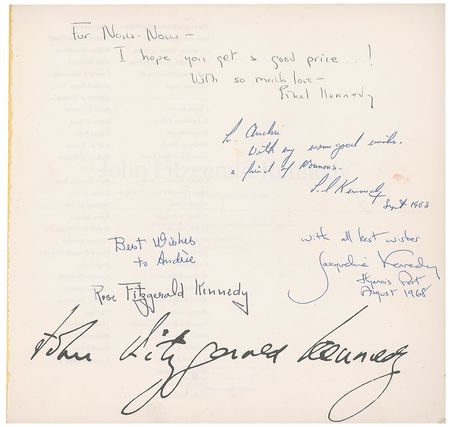 For Nou-Nou -
I hope you get a good price...!
With so much love -
Ethel Kennedy
To Andrée
With my warm good wishes.
a friend of
Kennedy
Sept 1968
Best Wishes
to Andrée
Rose Fitzgerald Kennedy
with all best wishes
Jacqueline Kennedy
Hyannis Port
August 1968
John Fitzgerald Kennedy